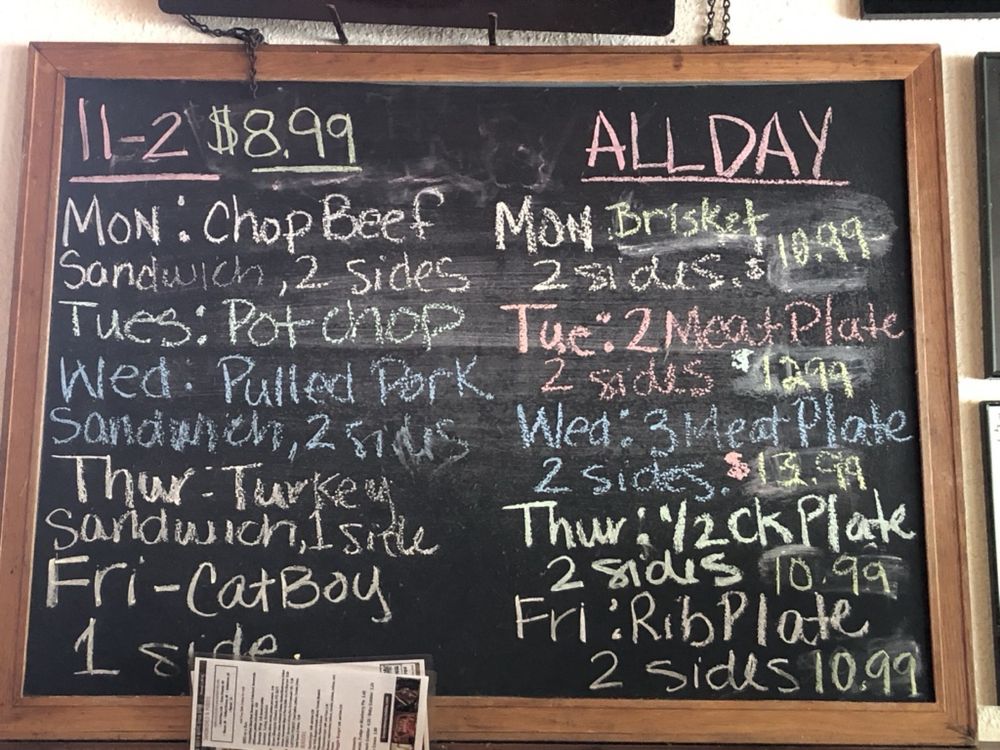 11-2 $8.99
Mon: Chop Beef
Sandwich, 2 sides
Tues: Potchop
Wed: Pulled Pork
Sandwich, 2 sides
Thur: Turkey
Sandwich, 1 side
Fri-CatBoy
1 side.
ALL DAY
Mon Brisket
2 sides. $10.99
Tue: 2 Meat Plate
2 sides $12.99
Wed: 3 Meat Plate
2 sides. $13.99
Thur: 1/2 CK Plate
2 sides 10.99
Fri: Rib Plate
2 sides 10.99